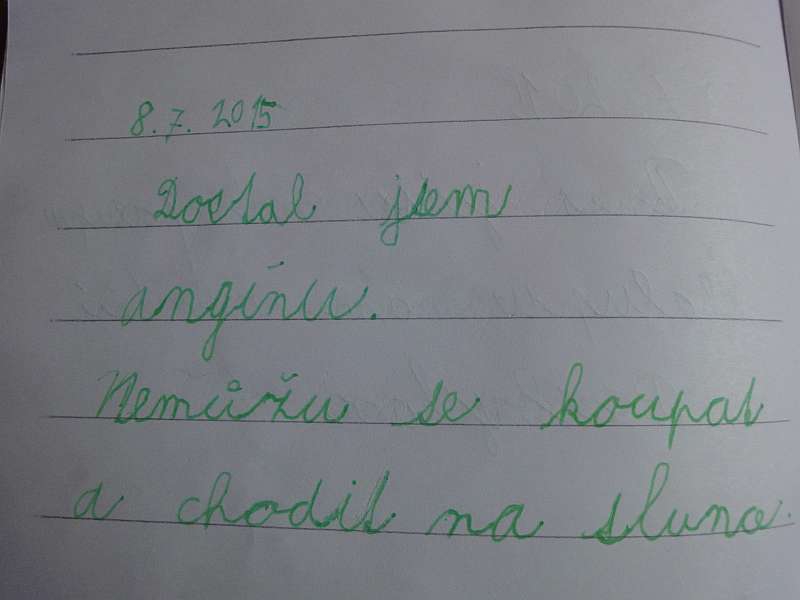 8.7.2015
Dostal jsem
angínu.
Nemůžu se koupat
a chodit na sluno.